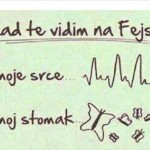 ad te vidim na Fejs
moje srce...
moj stomak...